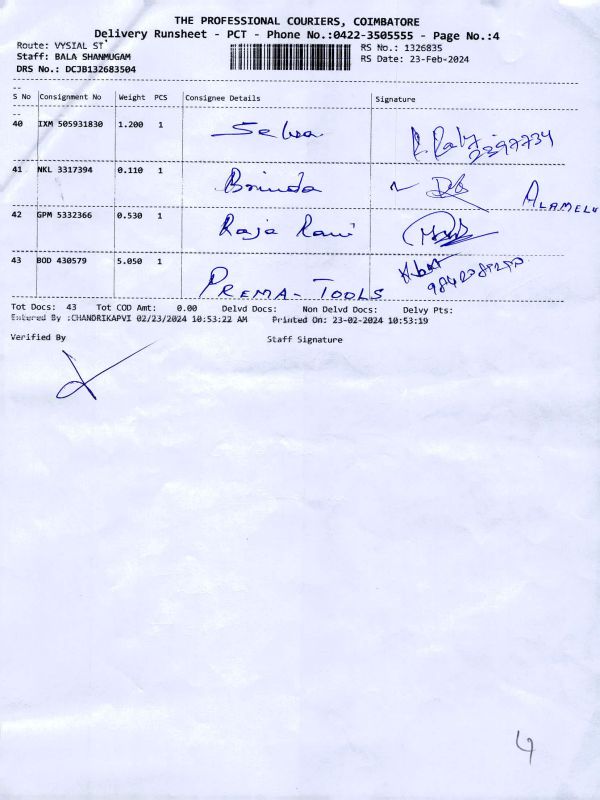 THE PROFESSIONAL COURIERS, COIMBATORE
Delivery Runsheet - PCT - Phone No.:0422-3505555 - Page No.:4
Route: VYSIAL ST
RS No.: 1326835
Staff: BALA SHANMUGAM
RS Date: 23-Feb-2024
DRS No.: DCJB132683504
S No Consignment No Weight PCS Consignee Details Signature
40 IXM 505931830 1.200 1 Selva
2397734
41 NKL 3317394 0.110 1 Brinda ALAMELU
42 GPM 5332366 0.530 1 Raja Rani
43 BOD 430579 5.050 1 PREMA-TOOLS
Tot Docs: 43 Tot COD Amt: 0.00 Delvd Docs: Non Delvd Docs: Delvy Pts:
Entered By :CHANDRIKAPVI 02/23/2024 10:53:22 AM Printed On: 23-02-2024 10:53:19
Verified By Staff Signature
4